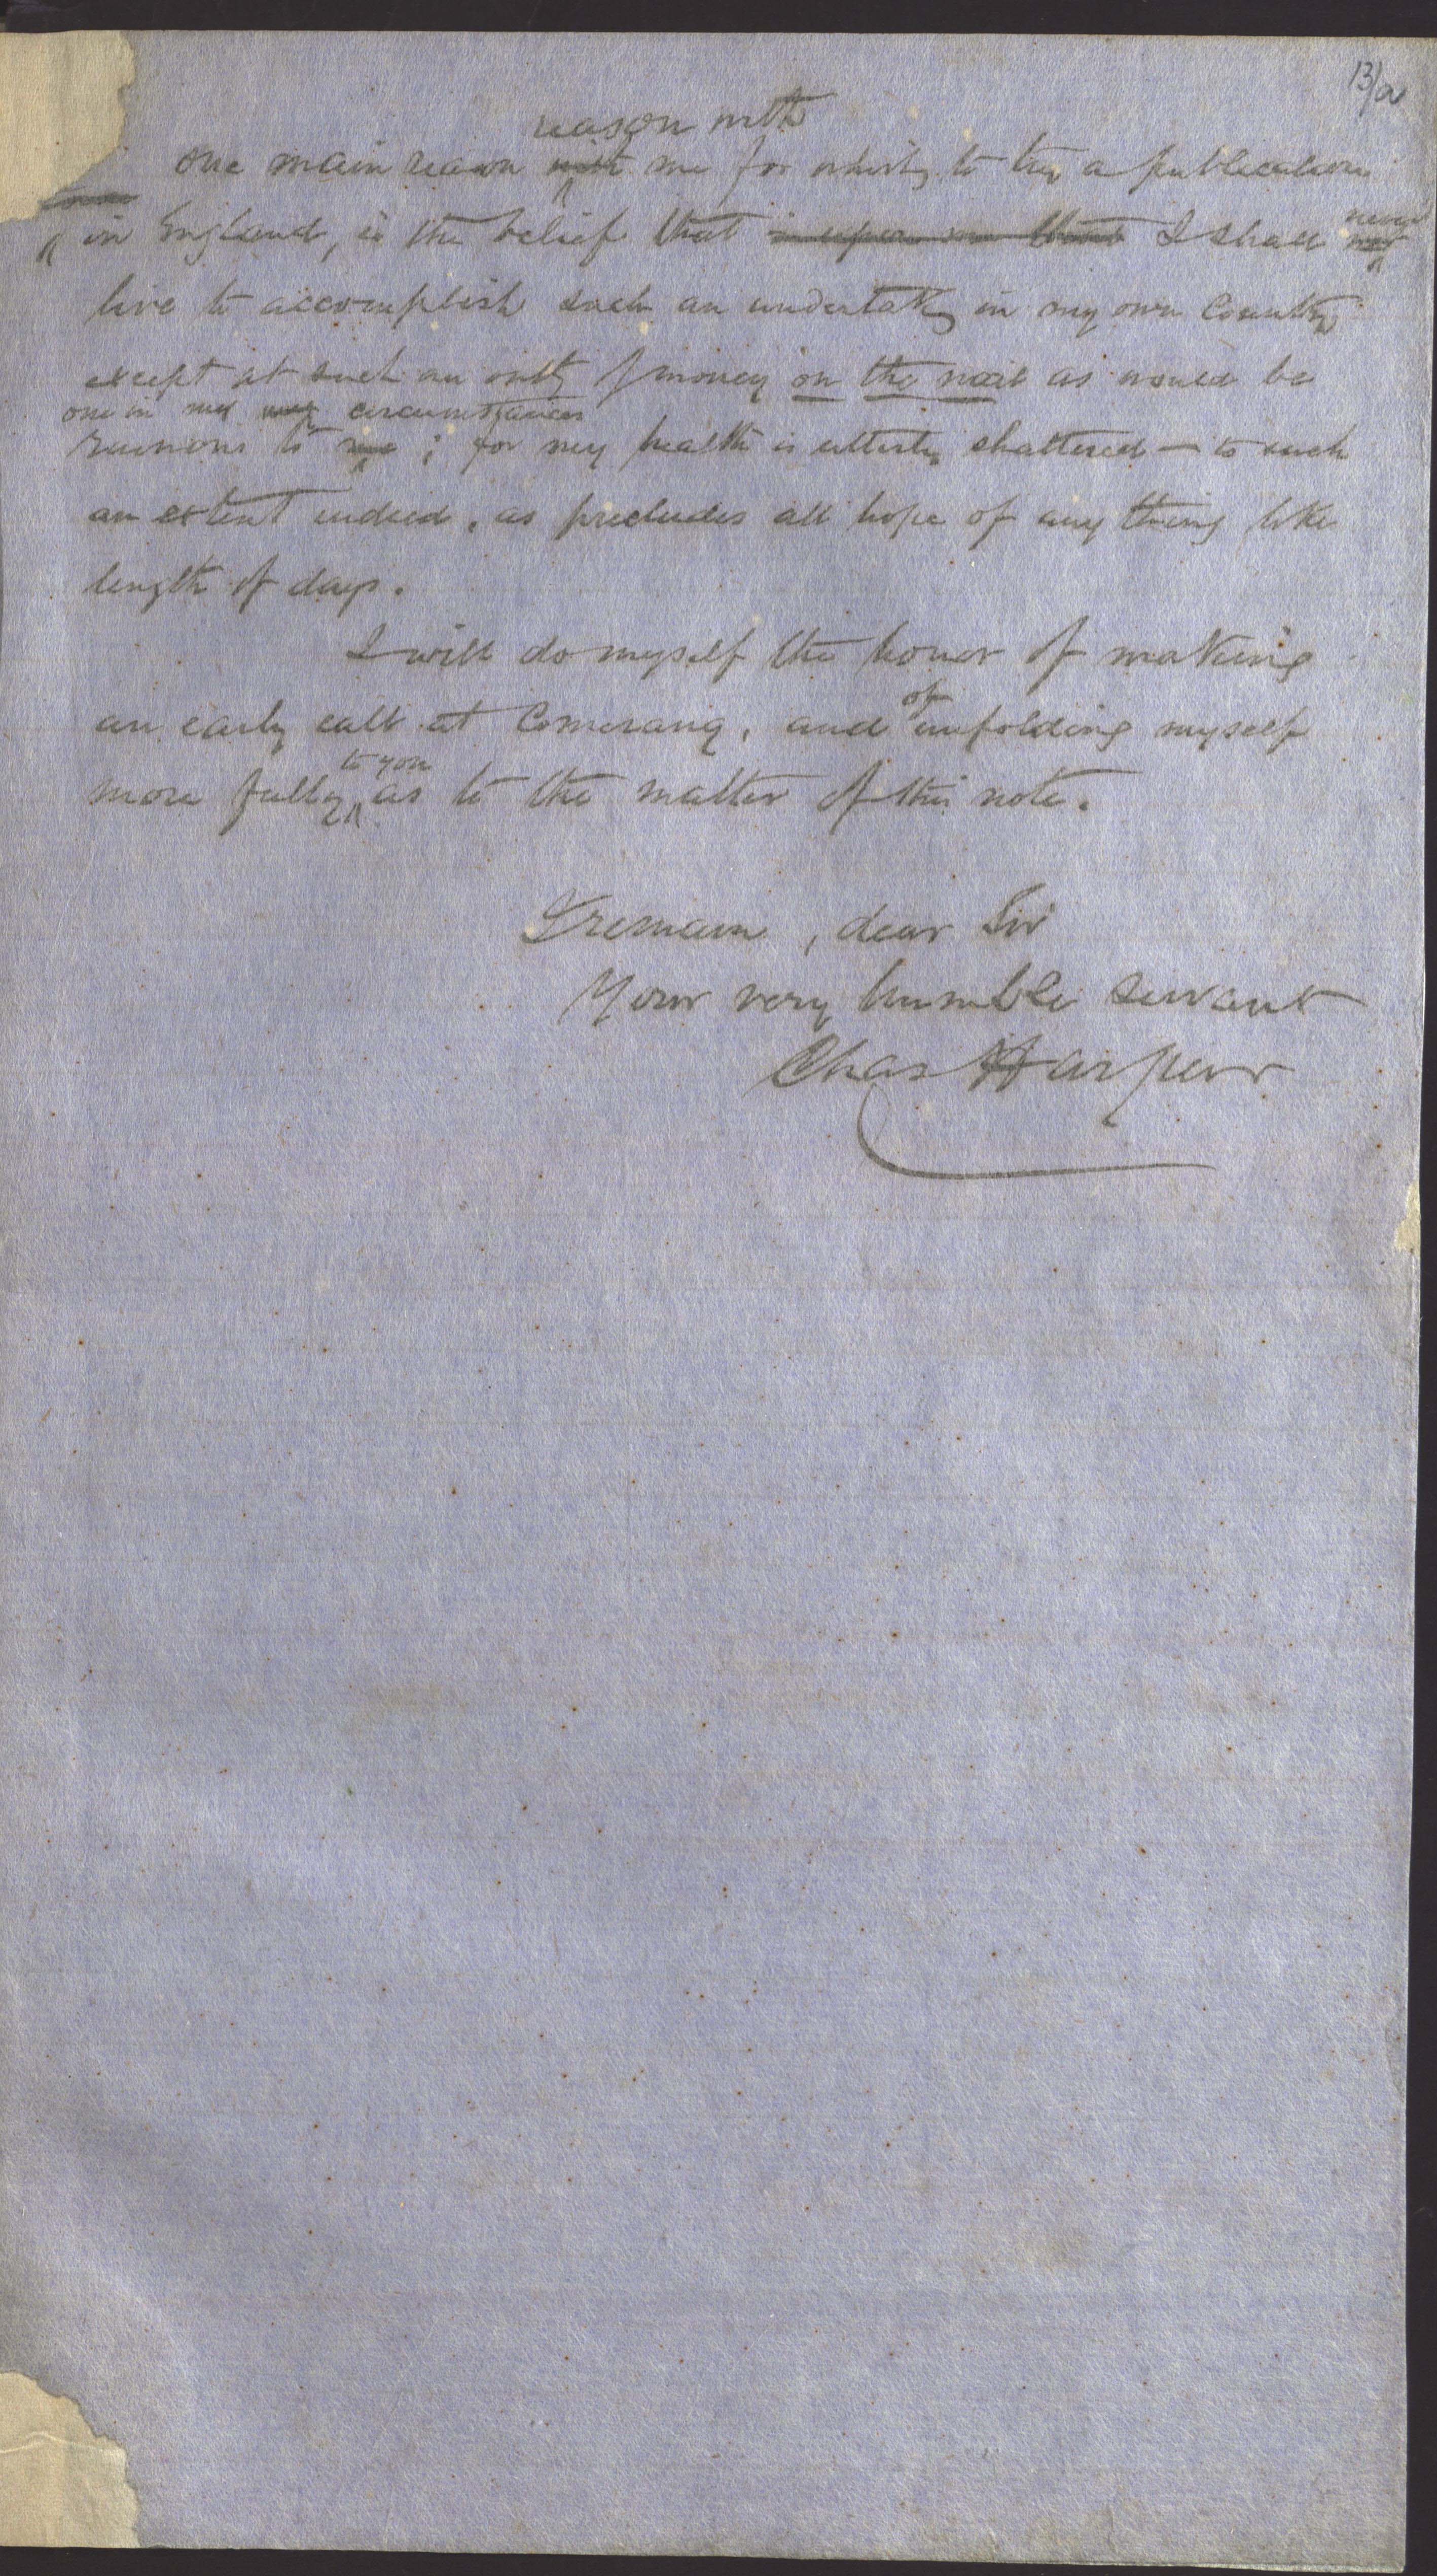 13/a
reason with
one main reason with me for wishing to try a publication
in England, is the belief that I shall not never
live to accomplish such an undertaking in my own Country
except at such an outlay of money on the nail as would be
one in my circumstances
ruinous to me; for my health is utterly shattered — to such
an extent indeed, as precludes all hope of any thing like
length of days.
I will do myself the honor of making
an early call at Comerang, and of unfolding myself
more fully to you as to the matter of this note.
I remain, dear Sir
Your very humble servant
Chas Harpur